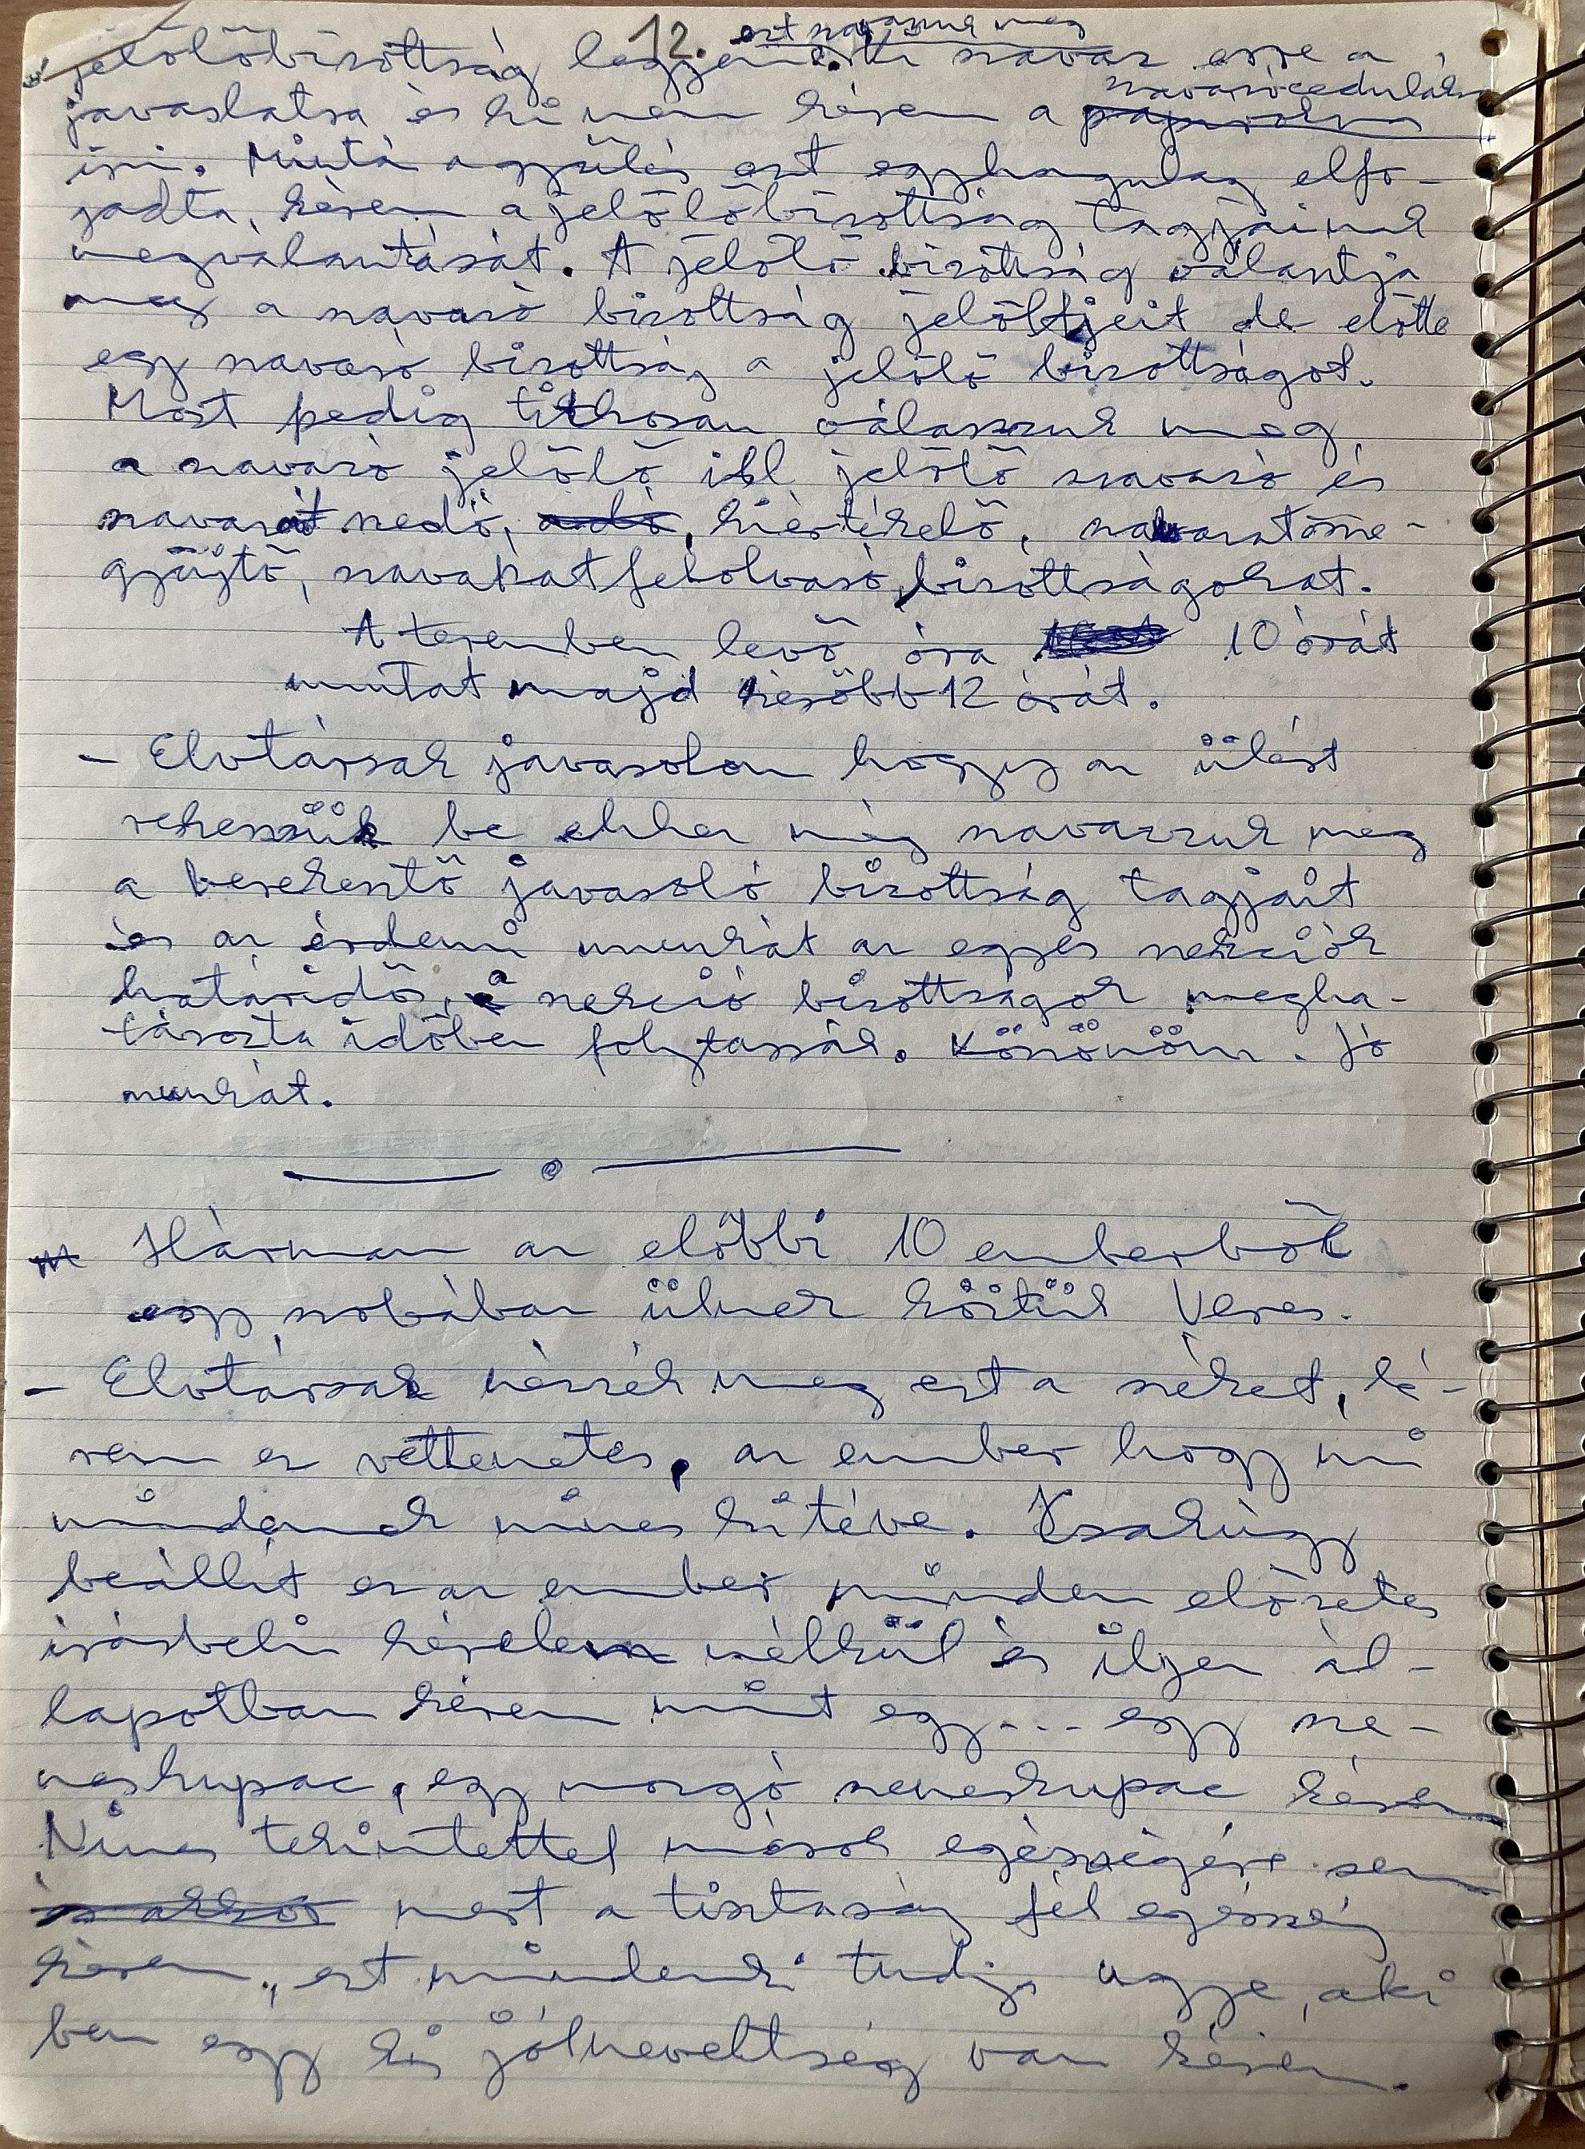 12.
ezt szavazzuk meg
jelölőbizottság legyen. Ki szavaz erre a
szavazócedulákra
javaslatra és ki nem kérem a papirokra
irni. Miután a gyülés ezt egyhangulag elfo-
gadta, kérem a jelölőbizottság tagjainak
megválasztását. A jelölő bizottság választja
meg a szavazó bizottság jelöltjeit de előtte
egy szavazó bizottság a jelölő bizottságot.
Most pedig titkosan válasszuk meg
a szavazó jelölő ill jelölő szavazó és
szavazat szedő, adó, kiértékelő, szavazatössze-
gyüjtő, szavazatfelolvasó bizottságokat.
A teremben levő óra 10 órát
mutat majd később 12 órát.
- Elvtársak javasolom hogy az ülést
rekesszük be ekkor még szavazzuk meg
a berekesztő javasoló bizottság tagjait
és az érdemi munkát az egyes szekciók
határidős, a szekció bizottságok megha-
tározta időben folytassák. Köszönöm. Jó
munkát.
Hárman az előbbi 10 emberből
egy szobában ülnek köztük Veres.
- Elvtársak nézzék meg ezt a széket, ké-
rem ez rettenetes, az ember hogy mi
mindennek nincs kitéve. Csakúgy
beállít ez az ember minden előzetes
irásbeli kérelem nélkül és ilyen ál-
lapotban kérem mint egy... egy sze-
meskupac, egy mozgó szemeskupac kérem
Nincs tekintettel mások egészségére sem
és akkor mert a tisztaság fél egészség
kérem, ezt mindenki tudja ugye, aki
ben egy kis jólneveltség van kérem.